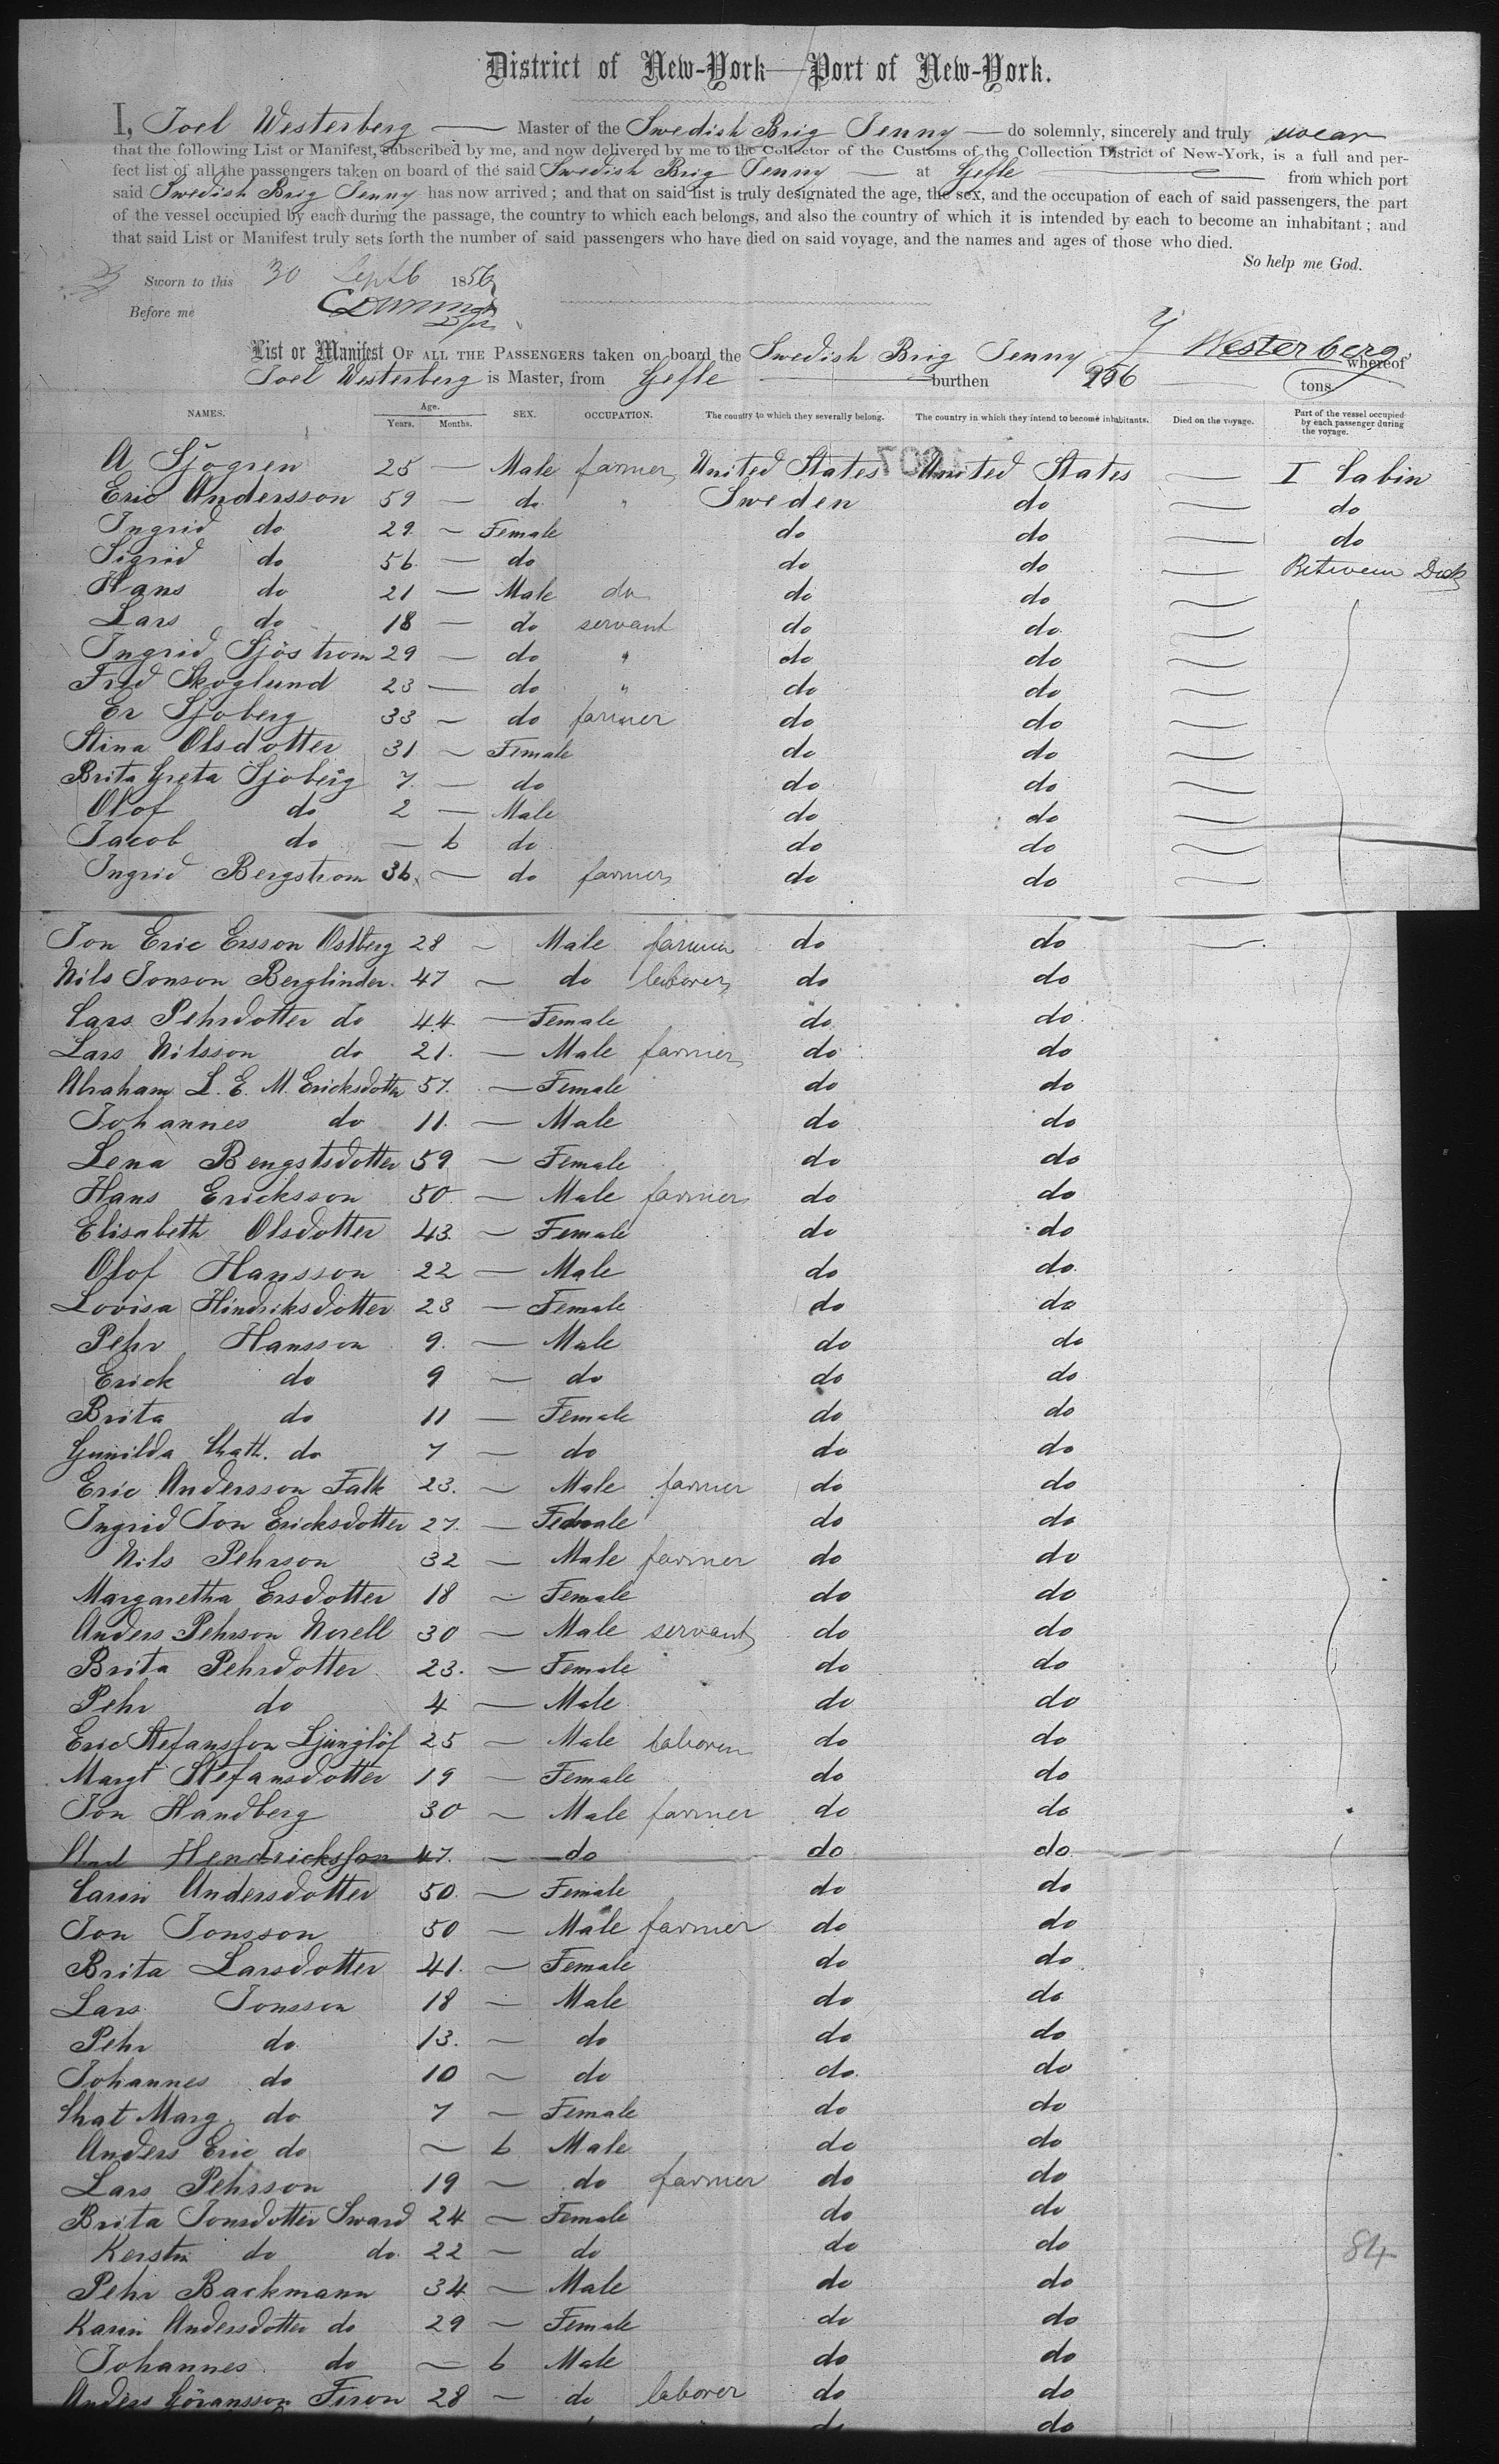 District of New-York—Port of New-York.
I, Joel Westerberg — Master of the Swedish Brig Jenny — do solemnly, sincerely and truly swear
that the following List or Manifest, subscribed by me, and now delivered by me to the Collector of the Customs of the Collection District of New-York, is a full and per-
fect list of all the passengers taken on board of the said Swedish Brig Jenny — at Gefle — from which port
said Swedish Brig Jenny has now arrived; and that on said list is truly designated the age, the sex, and the occupation of each of said passengers, the part
of the vessel occupied by each during the passage, the country to which each belongs, and also the country of which it is intended by each to become an inhabitant; and
that said List or Manifest truly sets forth the number of said passengers who have died on said voyage, and the names and ages of those who died.
So help me God.
Sworn to this 30 Septb 1856
Before me
Y Westerberg
List or Manifest OF ALL THE PASSENGERS taken on board the Swedish Brig Jenny whereof
Joel Westerberg is Master, from Gefle — burthen — tons
NAMES. Age. Years. Months. SEX. OCCUPATION. The country to which they severally belong. The country in which they intend to become inhabitants. Died on the voyage. Part of the vessel occupied by each passenger during the voyage.
A Sjögren 25 — Male farmer United States United States — I Cabin
Eric Andersson 59 — do " Sweden do — do
Ingrid do 29 — Female do do — do
Sigrid do 56 — do do do — Between Deck
Hans do 21 — Male do do do —
Lars do 18 — do servant do do —
Ingrid Sjöstrom 29 — do " do do —
Fred Skoglund 23 — do " do do —
Er Sjoberg 33 — do farmer do do —
Stina Olsdotter 31 — Female do do —
Brita Greta Sjoberg 7 — do do do —
Olof do 2 — Male do do —
Jacob do — 6 do do do —
Ingrid Bergstrom 36 — do farmer do do —
Jon Eric Ersson Ostberg 28 — Male farmer do do —
Nils Jonson Berglinder 47 — do laborer do do
Cars Pehrdotter do 44 — Female do do
Lars Nilsson do 21 — Male farmer do do
Abraham L. E. M. Ericksdotter 57 — Female do do
Johannes do 11 — Male do do
Lena Bengstsdotter 59 — Female do do
Hans Ericksson 50 — Male farmer do do
Elisabeth Olsdotter 43 — Female do do
Olof Hansson 22 — Male do do
Lovisa Hindriksdotter 23 — Female do do
Pehr Hansson 9 — Male do do
Erick do 9 — do do do
Brita do 11 — Female do do
Gunilda Chath. do 7 — do do do
Eric Andersson Falk 23 — Male farmer do do
Ingrid Jon Ericksdotter 27 — Female do do
Nils Pehrson 32 — Male farmer do do
Margaretha Ersdotter 18 — Female do do
Anders Pehrson Norell 30 — Male servant do do
Brita Pehrdotter 23 — Female do do
Pehr do 4 — Male do do
Eric Stefansson Ljunglöf 25 — Male laborer do do
Margt Stefansdotter 19 — Female do do
Jon Handberg 30 — Male farmer do do
Hendricksson 47 — do do do
Carin Andersdotter 50 — Female do do
Jon Jonsson 50 — Male farmer do do
Brita Larsdotter 41 — Female do do
Lars Jonsson 18 — Male do do
Pehr do 13 — do do do
Johannes do 10 — do do do
Chat Marg. do 7 — Female do do
Anders Eric do — 6 Male do do
Lars Pehrsson 19 — do farmer do do
Brita Jonsdotter Sward 24 — Female do do
Kerstin do do 22 — do do do
84
Pehr Backmann 34 — Male do do
Karin Andersdotter do 29 — Female do do
Johannes do — 6 Male do do
Anders Göransson Feron 28 — do laborer do do
do do